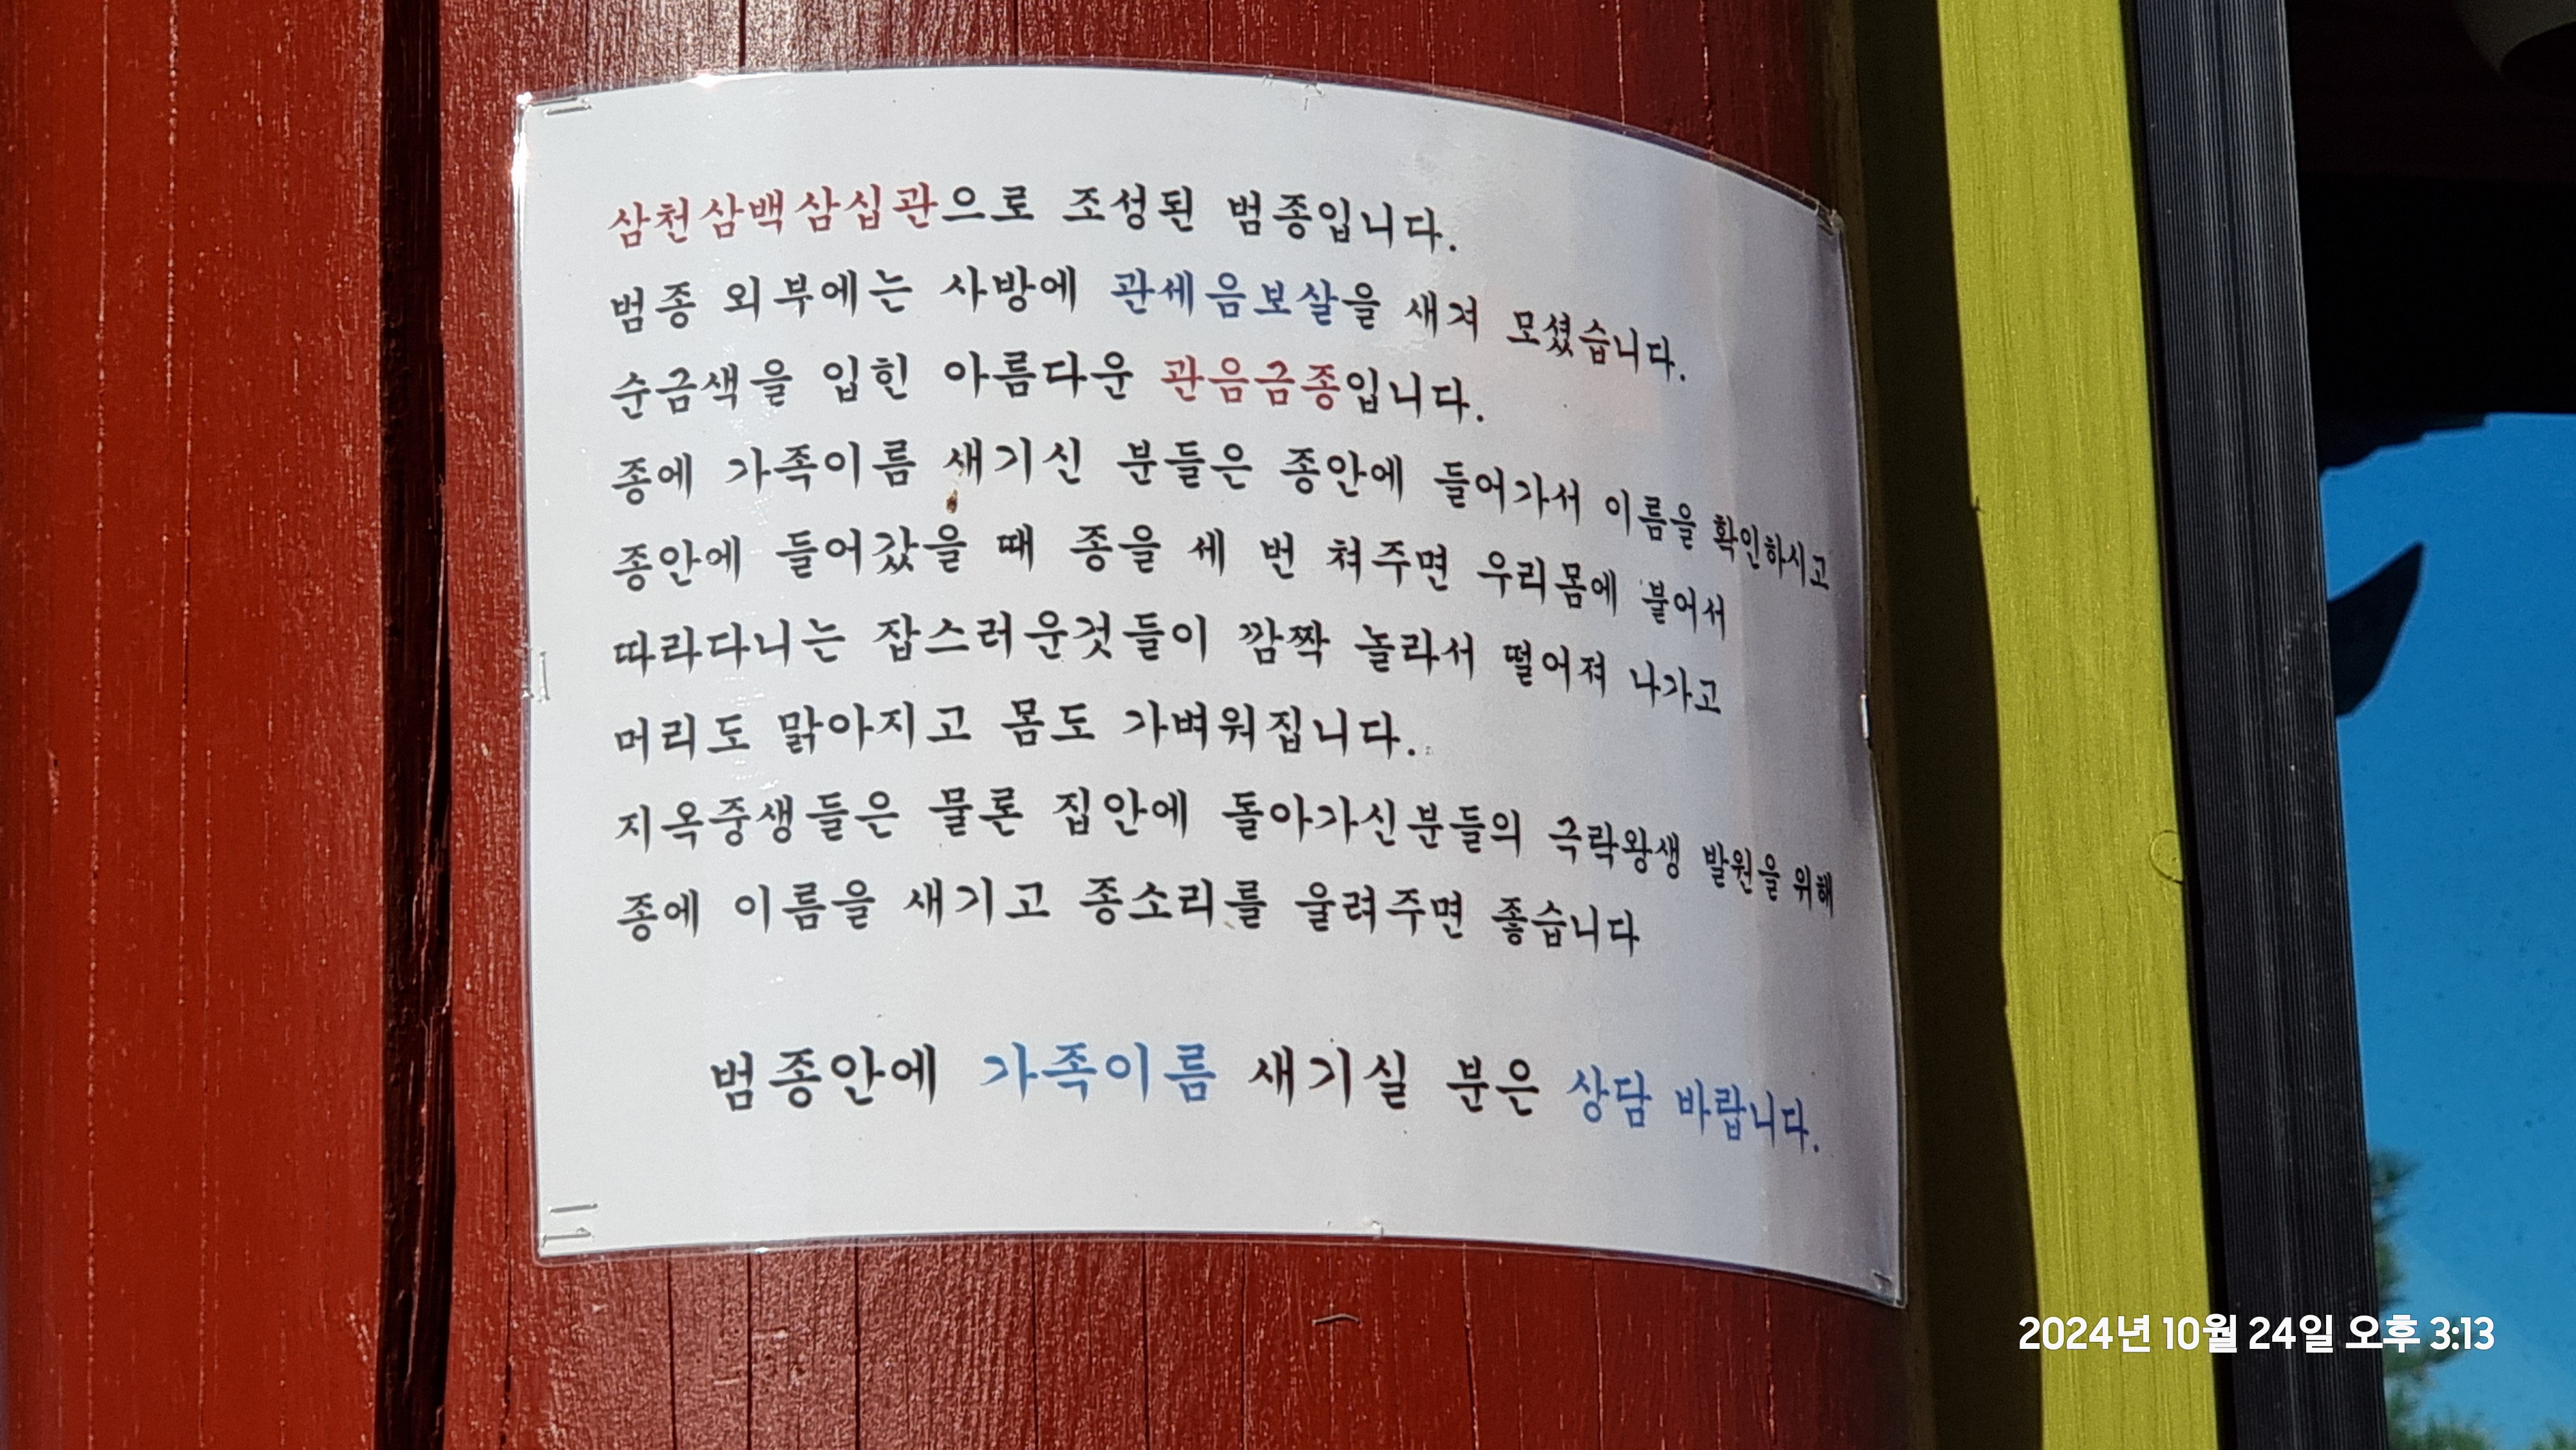 삼천삼백삼십관으로 조성된 범종입니다.
범종 외부에는 사방에 관세음보살을 새겨 모셨습니다.
순금색을 입힌 아름다운 관음금종입니다.
종에 가족이름 새기신 분들은 종안에 들어가서 이름을 확인하시고
종안에 들어갔을 때 종을 세 번 쳐주면 우리몸에 붙어서
따라다니는 잡스러운것들이 깜짝 놀라서 떨어져 나가고
머리도 맑아지고 몸도 가벼워집니다.
지옥중생들은 물론 집안에 돌아가신분들의 극락왕생 발원을 위해
종에 이름을 새기고 종소리를 울려주면 좋습니다
범종안에 가족이름 새기실 분은 상담 바랍니다.
2024년 10월 24일 오후 3:13